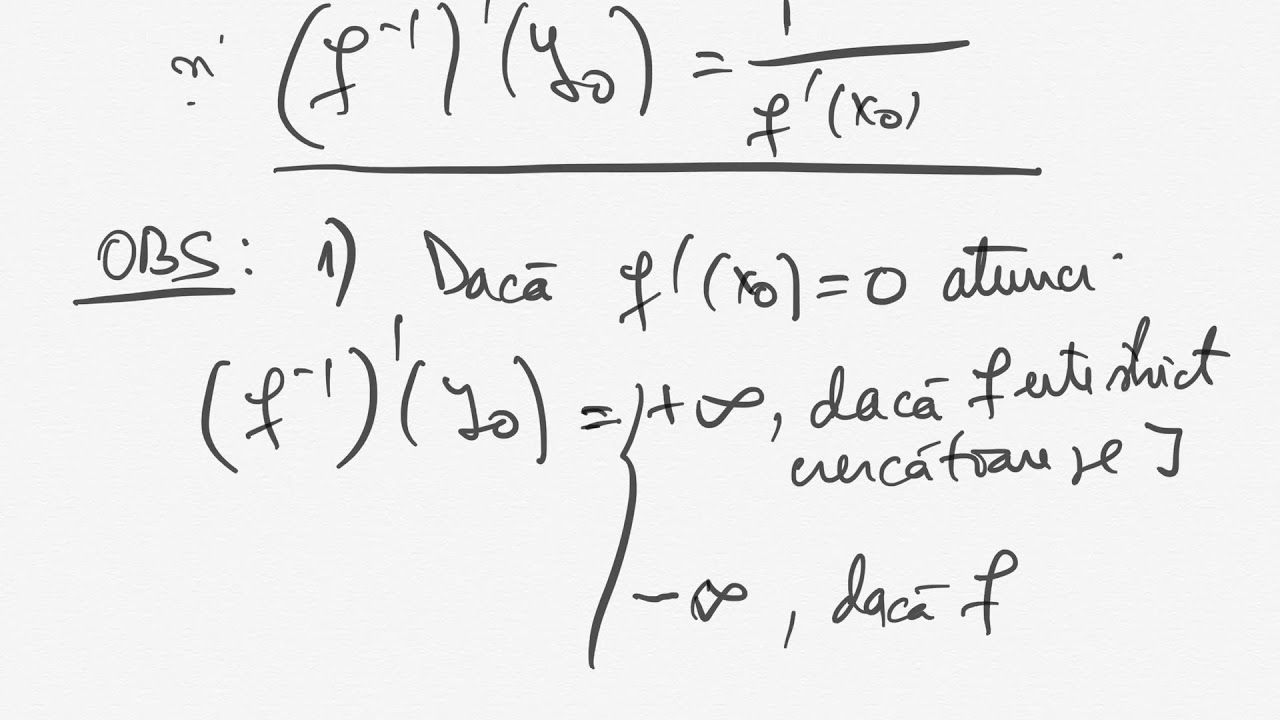 și (f⁻¹)'(y₀) = 1 / f'(x₀)
OBS: 1) Dacă f'(x₀) = 0 atunci
(f⁻¹)'(y₀) = { +∞, dacă f este strict
crescătoare pe J
-∞, dacă f